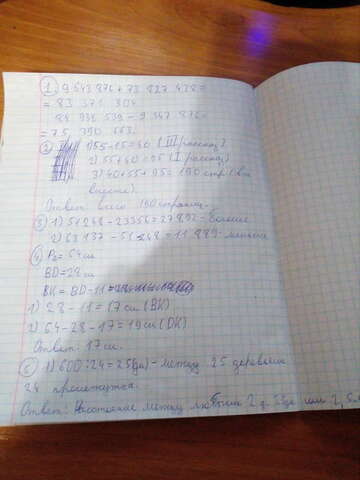 ① 9 543 876 + 73 827 428 =
= 83 371 304
84 938 539 - 9 547 876 =
= 75 390 663.
② 1) 55-15=40 (III рассказ)
2) 55+40=95 (I рассказ)
3) 40+55+95=190 стр (все
вместе).
Ответ: всего 190 страниц.
③ 1) 51248-23356=27892 - больше
2) 63 137 - 51 248 = 11 889 - меньше
④ P = 64 см
BD=28 см
BK = BD-11
1) 28-11=17 см (BK)
2) 64-28-17=19 см (DK)
Ответ: 17 см.
1) 600:24=25(дм) - между 25 деревьями
24 промежутка.
Ответ: Расстояние между любыми 2 д. 25дм или 2,5м